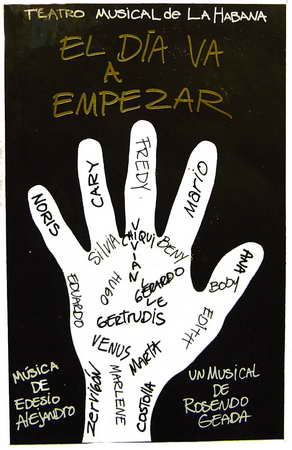 TEATRO MUSICAL de LA HABANA
EL DÍA VA
A
EMPEZAR
NORIS
CARY
FREDY
MARIO
SILVIA
CHIQUI
BENY
VIVIAN
HUGO
GERARDO
LELE
GERTRUDIS
EDUARDO
BODY
ANA
EDITH
VENUS
MARTA
MARLENE
COSTOYA
MÚSICA
DE
EDESIO
ALEJANDRO
UN MUSICAL
DE
ROSENDO
GEADA